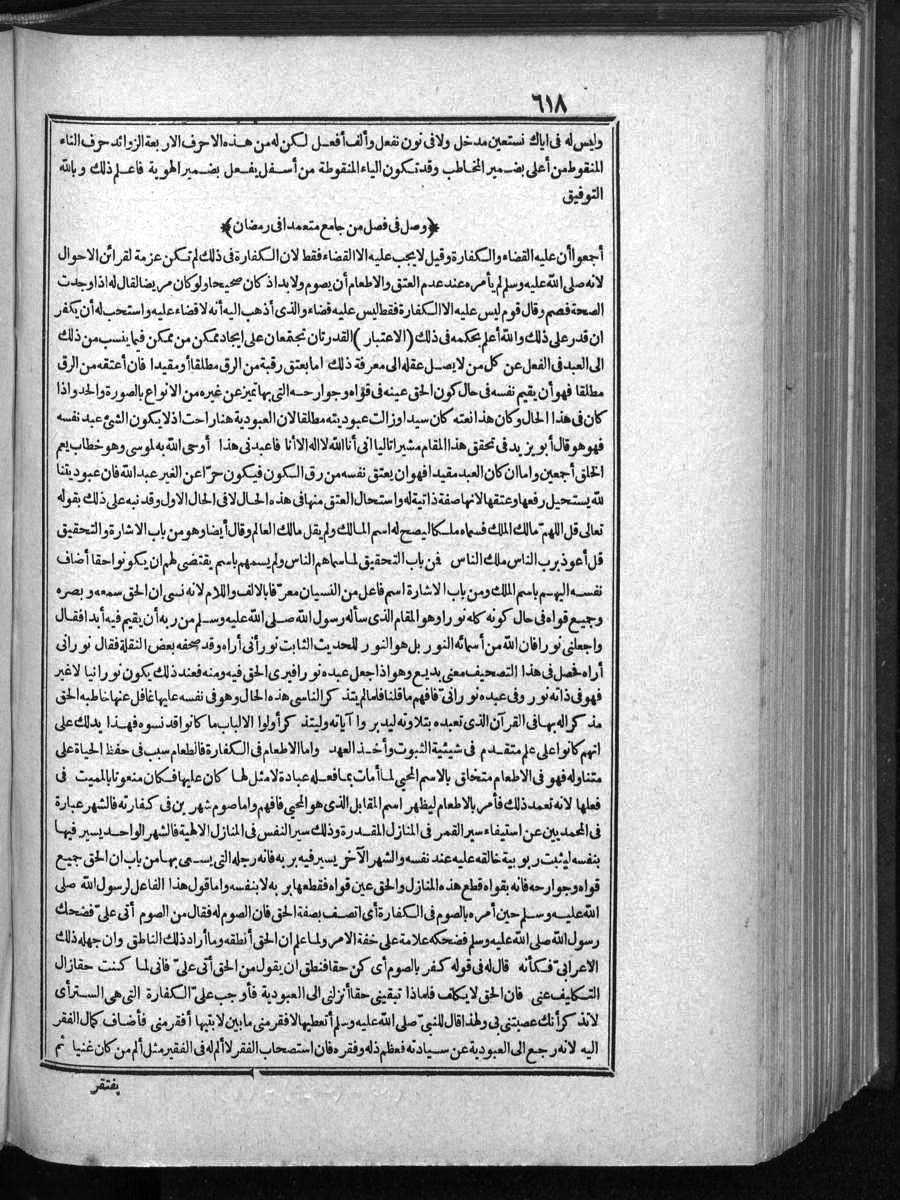 ٦١٨
وليس له فى اياك نستعين مدخل ولا فى نون نفعل وألف أفعل لكن له من هذه الاحرف الاربعة الزوائد حرف التاء
المنقوط من أعلى بضمير المخاطب وقد تكون الياء المنقوطة من أسفل يفعل بضمير الهوية فاعلم ذلك وبالله
التوفيق
﴿وصل فى فصل من جامع متعمدا فى رمضان﴾
أجمعوا أن عليه القضاء والكفارة وقيل لا يجب عليه الا القضاء فقط لان الكفارة فى ذلك لم تكن عزمة لقرائن الاحوال
لانه صلى الله عليه وسلم لم يأمره عند عدم العتق والاطعام أن يصوم ولا بد اذ كان صحيحا ولو كان مريضا لقال له اذا وجدت
الصحة فصم وقال قوم ليس عليه الا الكفارة فقط ليس عليه قضاء والذى أذهب اليه أنه لا قضاء عليه واستحب له أن يكفر
ان قدر على ذلك والله أعلم بحكمه فى ذلك (الاعتبار) القدرتان تجتمعان على ايجاد ممكن من ممكن فيما ينسب من ذلك
الى العبد فى الفعل عن كل من لا يصل عقله الى معرفة ذلك اما بعتق رقبة من الرق مطلقا أو مقيدا فان أعتقه من الرق
مطلقا فهو أن يقيم نفسه فى حال كون الحق عينه فى قواه وجوارحه التى بها تميز عن غيره من الانواع بالصورة والحد واذا
كان فى هذا الحال وكان هذا نعته كان سيدا وزالت عبوديته مطلقا لان العبودية هنا راحت اذ لا يكون الشئ عبد نفسه
فهو هو قال أبو يزيد فى تحقق هذا المقام مشيرا تاليا انى أنا الله لا اله الا أنا فاعبدنى هذا أوحى الله به لموسى وهو خطاب يعم
الخلق أجمعين واما ان كان العبد مقيدا فهو ان يعتق نفسه من رق الكون فيكون حرّا عن الغير عبد الله فان عبوديتنا
لله يستحيل رفعها وعتقها لانها صفة ذاتية له واستحال العتق منها فى هذه الحال لا فى الحال الاول وقد نبه على ذلك بقوله
تعالى قل اللهم مالك الملك فسماه ملكا ليصح له اسم المالك ولم يقل مالك العالم وقال أيضا وهو من باب الاشارة والتحقيق
قل أعوذ برب الناس ملك الناس فمن باب التحقيق لما سماهم الناس ولم يسمهم باسم يقتضى لهم ان يكونوا حقا أضاف
نفسه اليهم باسم الملك ومن باب الاشارة اسم فاعل من النسيان معرّفا بالالف واللام لانه نسى ان الحق سمعه وبصره
وجميع قواه فى حال كونه كله نورا وهو المقام الذى سأله رسول الله صلى الله عليه وسلم من ربه أن يقيم فيه أبدا فقال
واجعلنى نورا فان الله من أسمائه النور بل هو النور للحديث الثابت نور أنى أراه وقد صحفه بعض النقلة فقال نورانى
أراه فحصل فى هذا التصحيف معنى بديع وهو اذا جعل عبده نورا فيرى الحق فيه ومنه فعند ذلك يكون نورانيا لا غير
فهو فى ذاته نور وفى عبده نورانىّ فافهم ما قلنا فلما لم يتذكر الناسى هذه الحال وهو فى نفسه عليها غافل عنها خاطبه الحق
مذكرا له بها فى القرآن الذى تعبده بتلاوته ليدبروا آياته وليتذكر أولوا الالباب ما كانوا قد نسوه فهذا يدلك على
انهم كانوا على علم متقدم فى شيئية الثبوت وأخذ العهد واما الاطعام فى الكفارة فالطعام سبب فى حفظ الحياة على
متناوله فهو فى الاطعام متخلق بالاسم المحيي لما أمات بما فعله عبادة لا مثل لها كان عليها فكان منعوتا بالمميت فى
فعلها لانه تعمد ذلك فأمر بالاطعام ليظهر اسم المقابل الذى هو المحيي فافهم واما صوم شهرين فى كفارته فالشهر عبارة
فى المحمديين عن استيفاء سير القمر فى المنازل المقدرة وذلك سير النفس فى المنازل الالهية فالشهر الواحد يسير فيها
بنفسه ليثبت ربوبية خالقه عليه عند نفسه والشهر الآخر يسير فيه بربه فانه رجله التى يسعى بها من باب ان الحق جميع
قواه وجوارحه فانه بقواه قطع هذه المنازل والحق عين قواه فقطعها بربه لا بنفسه واما قول هذا الفاعل لرسول الله صلى
الله عليه وسلم حين أمره بالصوم فى الكفارة أى اتصف بصفة الحق فان الصوم له فقال من الصوم أتى علىّ فضحك
رسول الله صلى الله عليه وسلم فضحكه علامة على خفة الامر ولما علم ان الحق أنطقه وما أراد ذلك الناطق وان جهله ذلك
الاعرابىّ فكأنه قال له فى قوله كفر بالصوم أى كن حقا فنطق ان يقول من الحق أتى علىّ فانى لما كنت حقا زال
التكليف عنى فان الحق لا يكلف فلماذا تبقينى حقا أنزلنى الى العبودية فأوجب علىّ الكفارة التى هى الستر أى
لا تذكر أنك عصبتنى فى ولهذا قال للنبىّ صلى الله عليه وسلم أتعطيها لافقر منى ما بين لابتيها أفقر منى فأضاف كمال الفقر
اليه لانه رجع الى العبودية عن سيادته فعظم ذله وفقره فان استصحاب الفقر لا ألم له فى الفقير مثل ألم من كان غنيا ثم
يفتقر